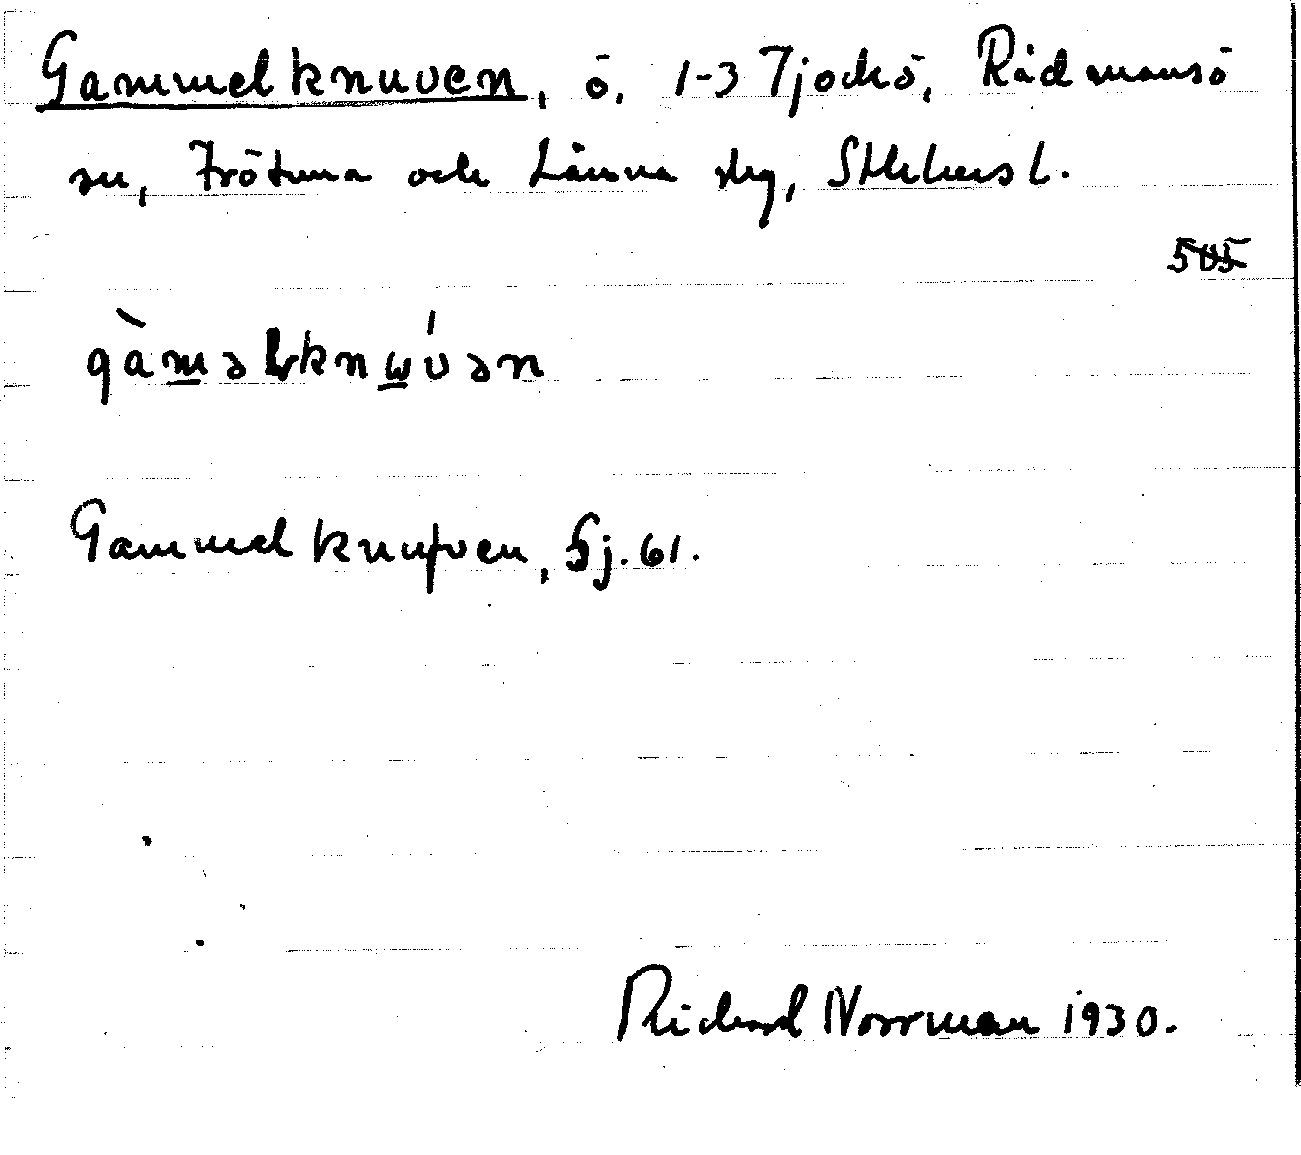 Gammelknuven, ö, 1-3 Tjockö, Rådmansö
sn, Frötuna och Länna skg, Sthlms l.
505
gàmalknẃvən
Gammelknufven, Sj. 61.
Richard Norrman 1930.